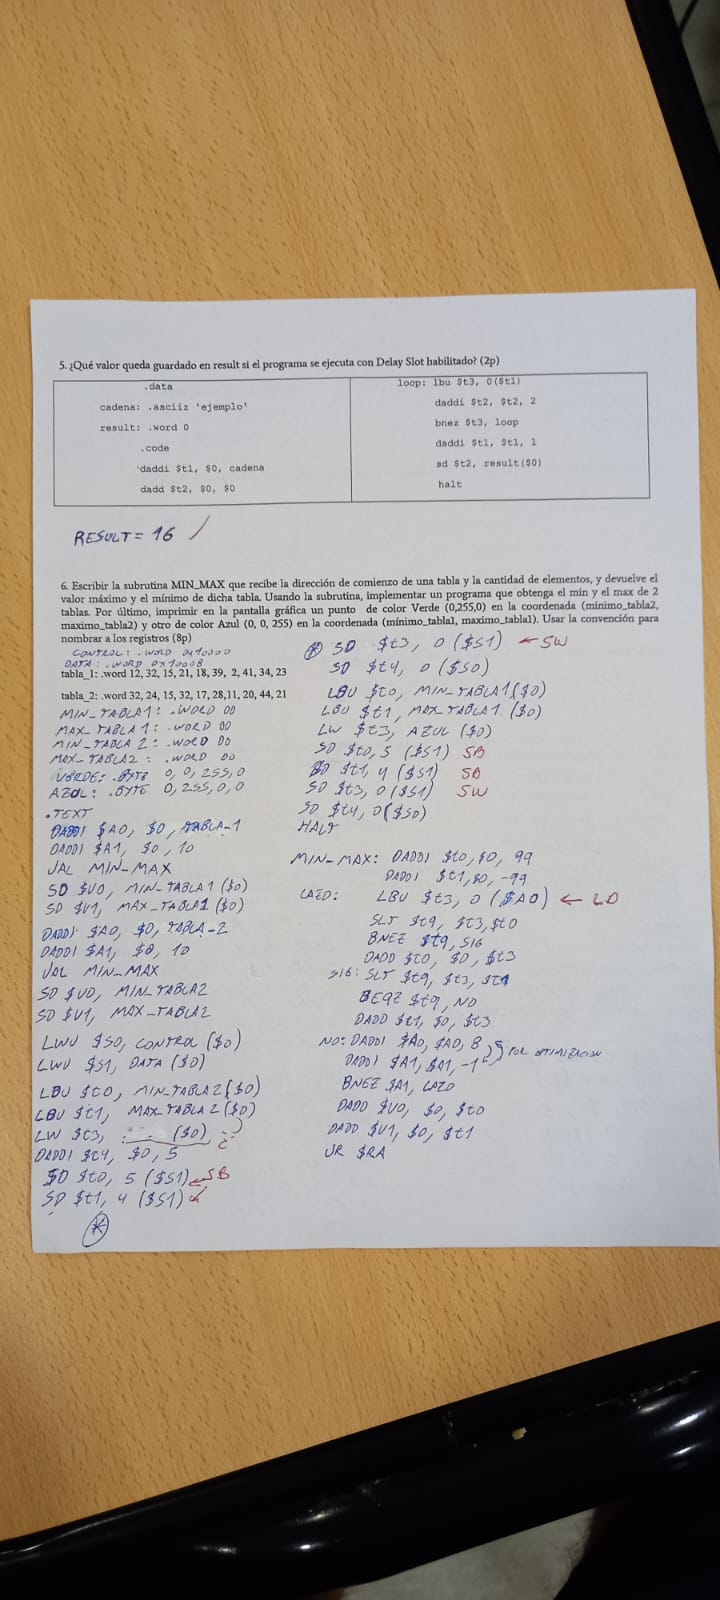 5. ¿Qué valor queda guardado en result si el programa se ejecuta con Delay Slot habilitado? (2p)
.data
cadena: .asciiz 'ejemplo'
result: .word 0
.code
daddi $t1, $0, cadena
dadd $t2, $0, $0
loop: lbu $t3, 0($t1)
daddi $t2, $t2, 2
bnez $t3, loop
daddi $t1, $t1, 1
sd $t2, result($0)
halt
RESULT = 16
6. Escribir la subrutina MIN_MAX que recibe la dirección de comienzo de una tabla y la cantidad de elementos, y devuelve el
valor máximo y el mínimo de dicha tabla. Usando la subrutina, implementar un programa que obtenga el min y el max de 2
tablas. Por último, imprimir en la pantalla gráfica un punto de color Verde (0,255,0) en la coordenada (minimo_tabla2,
maximo_tabla2) y otro de color Azul (0, 0, 255) en la coordenada (mínimo_tabla1, maximo_tabla1). Usar la convención para
nombrar a los registros (8p)
CONTROL: .WORD 0x10000
DATA: .WORD 0x10008
tabla_1: .word 12, 32, 15, 21, 18, 39, 2, 41, 34, 23
tabla_2: .word 32, 24, 15, 32, 17, 28,11, 20, 44, 21
MIN_TABLA1: .WORD 00
MAX_TABLA1: .WORD 00
MIN_TABLA2: .WORD 00
MAX_TABLA2: .WORD 00
VERDE: .BYTE 0,0,255,0
AZUL: .BYTE 0,255,0,0
.TEXT
DADDI $A0, $0, TABLA_1
DADDI $A1, $0, 10
JAL MIN_MAX
SD $V0, MIN_TABLA1 ($0)
SD $V1, MAX_TABLA1 ($0)
DADDI $A0, $0, TABLA_2
DADDI $A1, $0, 10
JAL MIN_MAX
SD $V0, MIN_TABLA2
SD $V1, MAX_TABLA2
LWU $S0, CONTROL ($0)
LWU $S1, DATA ($0)
LBU $t0, MIN_TABLA2 ($0)
LBU $t1, MAX_TABLA2 ($0)
LW $t3, ($0) ?
DADDI $t4, $0, 5
SD $t0, 5 ($S1) ← SB
SD $t1, 4 ($S1)
*
* SD $t3, 0 ($S1) ← SW
SD $t4, 0 ($S0)
LBU $t0, MIN_TABLA1 ($0)
LBU $t1, MAX_TABLA1 ($0)
LW $t3, AZUL ($0)
SD $t0, 5 ($S1) SB
SD $t1, 4 ($S1) SB
SD $t3, 0 ($S1) SW
SD $t4, 0 ($S0)
HALT
MIN_MAX: DADDI $t0, $0, 99
DADDI $t1, $0, -99
LAZO: LBU $t3, 0 ($A0) ← LD
SLT $t9, $t3, $t0
BNEZ $t9, SIG
DADD $t0, $0, $t3
SIG: SLT $t9, $t3, $t1
BEQZ $t9, NO
DADD $t1, $0, $t3
NO: DADDI $A0, $A0, 8
DADDI $A1, $A1, -1 POR OPTIMIZACION
BNEZ $A1, LAZO
DADD $V0, $0, $t0
DADD $V1, $0, $t1
JR $RA